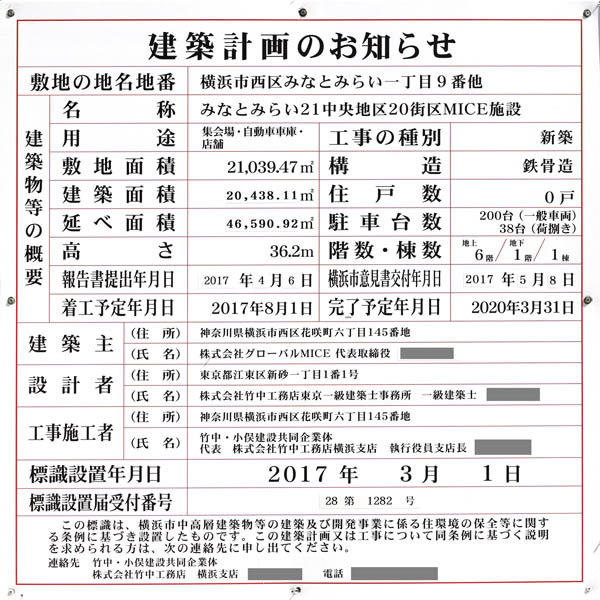 建築計画のお知らせ
敷地の地名地番 横浜市西区みなとみらい一丁目9番他
建築物等の概要
名称 みなとみらい21中央地区20街区MICE施設
用途 集会場・自動車車庫・店舗 工事の種別 新築
敷地面積 21,039.47㎡ 構造 鉄骨造
建築面積 20,438.11㎡ 住戸数 0戸
延べ面積 46,590.92㎡ 駐車台数 200台(一般車両) 38台(荷捌き)
高さ 36.2m 階数・棟数 地上6階/地下1階/1棟
報告書提出年月日 2017年4月6日 横浜市意見書交付年月日 2017年5月8日
着工予定年月日 2017年8月1日 完了予定年月日 2020年3月31日
建築主 (住所) 神奈川県横浜市西区花咲町六丁目145番地
(氏名) 株式会社グローバルMICE 代表取締役
設計者 (住所) 東京都江東区新砂一丁目1番1号
(氏名) 株式会社竹中工務店東京一級建築士事務所 一級建築士
工事施工者 (住所) 神奈川県横浜市西区花咲町六丁目145番地
(氏名) 竹中・小俣建設共同企業体
代表 株式会社竹中工務店横浜支店 執行役員支店長
標識設置年月日 2017年 3月 1日
標識設置届受付番号 28第 1282 号
この標識は、横浜市中高層建築物等の建築及び開発事業に係る住環境の保全等に関す
る条例に基づき設置したものです。この建築計画又は工事について同条例に基づく説明
を求められる方は、次の連絡先に申し出てください。
連絡先 竹中・小俣建設共同企業体
株式会社竹中工務店 横浜支店 電話